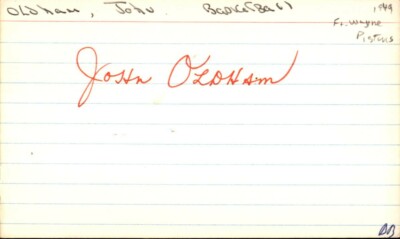 Oldham, John Basketball 1949
Ft. Wayne
Pistons
John Oldham
BB